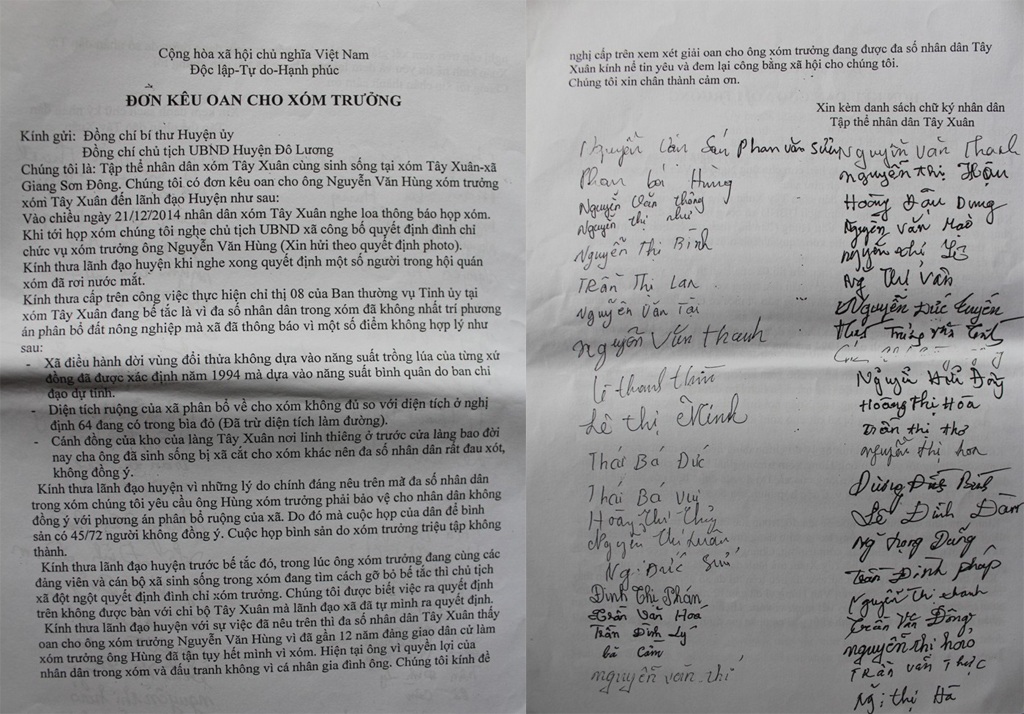 Cộng hòa xã hội chủ nghĩa Việt Nam
Độc lập-Tự do-Hạnh phúc
ĐƠN KÊU OAN CHO XÓM TRƯỞNG
Kính gửi: Đồng chí bí thư Huyện ủy
Đồng chí chủ tịch UBND Huyện Đô Lương
Chúng tôi là: Tập thể nhân dân xóm Tây Xuân cùng sinh sống tại xóm Tây Xuân-xã
Giang Sơn Đông. Chúng tôi có đơn kêu oan cho ông Nguyễn Văn Hùng xóm trưởng
xóm Tây Xuân đến lãnh đạo Huyện như sau:
Vào chiều ngày 21/12/2014 nhân dân xóm Tây Xuân nghe loa thông báo họp xóm.
Khi tới họp xóm chúng tôi nghe chủ tịch UBND xã công bố quyết định đình chỉ
chức vụ xóm trưởng ông Nguyễn Văn Hùng (Xin hửi theo quyết định photo).
Kính thưa lãnh đạo huyện khi nghe xong quyết định một số người trong hội quán
xóm đã rơi nước mắt.
Kính thưa cấp trên công việc thực hiện chỉ thị 08 của Ban thường vụ Tỉnh ủy tại
xóm Tây Xuân đang bế tắc là vì đa số nhân dân trong xóm đã không nhất trí phương
án phân bổ đất nông nghiệp mà xã đã thông báo vì một số điểm không hợp lý như
sau:
- Xã điều hành dời vùng đổi thửa không dựa vào năng suất trồng lúa của từng xứ
đồng đã được xác định năm 1994 mà dựa vào năng suất bình quân do ban chỉ
đạo dự tính.
- Diện tích ruộng của xã phân bổ về cho xóm không đủ so với diện tích ở nghị
định 64 đang có trong bìa đỏ (Đã trừ diện tích làm đường).
- Cánh đồng của kho của làng Tây Xuân nơi linh thiêng ở trước cửa làng bao đời
nay cha ông đã sinh sống bị xã cắt cho xóm khác nên đa số nhân dân rất đau xót,
không đồng ý.
Kính thưa lãnh đạo huyện vì những lý do chính đáng nêu trên mà đa số nhân dân
trong xóm chúng tôi yêu cầu ông Hùng xóm trưởng phải bảo vệ cho nhân dân không
đồng ý với phương án phân bổ ruộng của xã. Do đó mà cuộc họp của dân để bình
sản có 45/72 người không đồng ý. Cuộc họp bình sản do xóm trưởng triệu tập không
thành.
Kính thưa lãnh đạo huyện trước bế tắc đó, trong lúc ông xóm trưởng đang cùng các
đảng viên và cán bộ xã sinh sống trong xóm đang tìm cách gỡ bỏ bế tắc thì chủ tịch
xã đột ngột quyết định đình chỉ xóm trưởng. Chúng tôi được biết việc ra quyết định
trên không được bàn với chi bộ Tây Xuân mà lãnh đạo xã đã tự mình ra quyết định.
Kính thưa lãnh đạo huyện với sự việc đã nêu trên thì đa số nhân dân Tây Xuân thấy
oan cho ông xóm trưởng Nguyễn Văn Hùng vì đã gần 12 năm đảng giao dân cử làm
xóm trưởng ông Hùng đã tận tụy hết mình vì xóm. Hiện tại ông vì quyền lợi của
nhân dân trong xóm và đấu tranh không vì cá nhân gia đình ông. Chúng tôi kính đề
nghị cấp trên xem xét giải oan cho ông xóm trưởng đang được đa số nhân dân Tây
Xuân kính nể tin yêu và đem lại công bằng xã hội cho chúng tôi.
Chúng tôi xin chân thành cảm ơn.
Xin kèm danh sách chữ ký nhân dân
Tập thể nhân dân Tây Xuân
Nguyễn Văn Sáu
Phan văn sửu
Phan bá Hùng
Nguyễn Văn Thông
Nguyễn thị như
Nguyễn Thị Bình
Trần Thị Lan
Nguyễn Văn Tài
Nguyễn Văn Thanh
Lê thị Minh
Thái Bá Đức
Thái Bá Vui
Hoàng Thị Thủy
Nguyễn Thị Luân
Ng. Đức Sửu
Đinh Thị Phán
Trần Văn Hoá
Trần Đình Lý
bà Cảm
nguyễn văn thí
Nguyễn Văn Thanh
nguyễn thị Hậu
Hoàng Đậu Dung
Nguyễn Văn Hào
Ng Thị Vân
Nguyễn Đức
Nguyễn Hữu Đồng
Hoàng Thị Hóa
Trần thị thơ
nguyễn thị hoa
Dương Đình
Lê Đình Đàm
Ng Trọng Dũng
Trần Đình pháp
Nguyễn Thị thanh
Trần Văn Đông
nguyễn thị hảo
Trần văn Thực
Ng: thị Hà